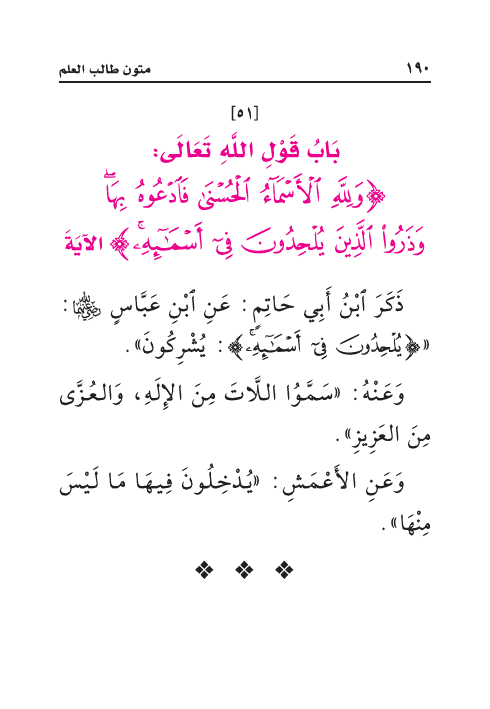 ١٩٠ متون طالب العلم
[٥١]
بَابُ قَوْلِ اللَّهِ تَعَالَى:
﴿وَلِلَّهِ ٱلْأَسْمَآءُ ٱلْحُسْنَىٰ فَٱدْعُوهُ بِهَا ۖ
وَذَرُوا۟ ٱلَّذِينَ يُلْحِدُونَ فِىٓ أَسْمَـٰٓئِهِۦ ۚ﴾ الآيَةَ
ذَكَرَ ٱبْنُ أَبِي حَاتِمٍ: عَنِ ٱبْنِ عَبَّاسٍ رضي الله عنهما:
«﴿يُلْحِدُونَ فِىٓ أَسْمَـٰٓئِهِۦ ۚ﴾: يُشْرِكُونَ».
وَعَنْهُ: «سَمَّوُا اللَّاتَ مِنَ الإِلَهِ، وَالعُزَّى
مِنَ العَزِيزِ».
وَعَنِ الأَعْمَشِ: «يُدْخِلُونَ فِيهَا مَا لَيْسَ
مِنْهَا».